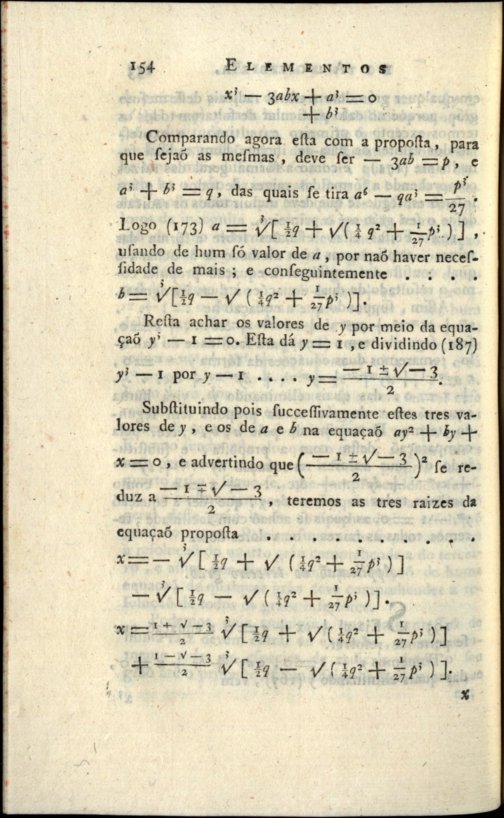 154 ELEMENTOS
x³ — 3abx + a³ = 0
+ b³
Comparando agora eſta com a propoſta, para
que ſejaõ as meſmas, deve ſer — 3ab = p, e
a³ + b³ = q, das quais ſe tira a⁶ — qa³ = p³/27.
Logo (173) a = ∛[½q + √(¼q² + 1/27 p³)],
uſando de hum ſó valor de a, por naõ haver neceſ-
ſidade de mais; e conſeguintemente . . . .
b = ∛[½q — √(¼q² + 1/27 p³)].
Reſta achar os valores de y por meio da equa-
çaõ y³ — 1 = 0. Eſta dá y = 1, e dividindo (187)
y³ — 1 por y — 1 . . . . y = (— 1 ± √— 3)/2.
Subſtituindo pois ſucceſſivamente eſtes tres va-
lores de y, e os de a e b na equaçaõ ay² + by +
x = 0, e advertindo que ((— 1 ± √— 3)/2)² ſe re-
duz a (— 1 ∓ √— 3)/2, teremos as tres raizes da
equaçaõ propoſta . . . . . . . .
x = — ∛[½q + √(¼q² + 1/27 p³)]
— ∛[½q — √(¼q² + 1/27 p³)].
x = (1 + √—3)/2 ∛[½q + √(¼q² + 1/27 p³)]
+ (1 — √—3)/2 ∛[½q — √(¼q² + 1/27 p³)].
x